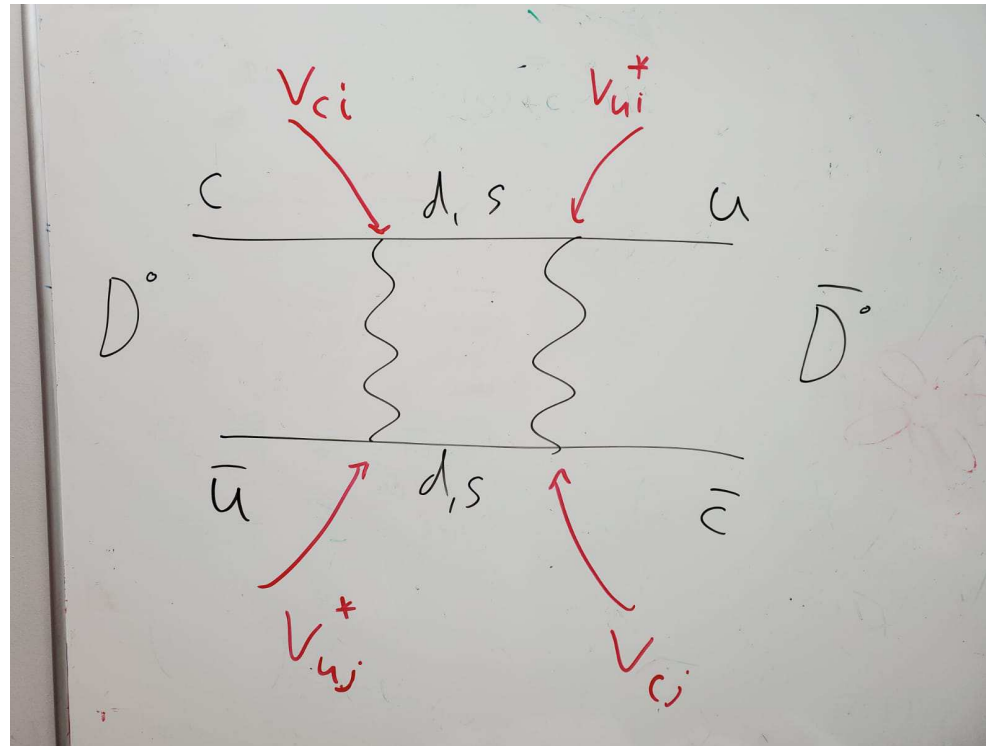 V_{ci} V_{ui}^*
c d, s u
D° D̄°
ū d,s c̄
V_{uj}^* V_{cj}